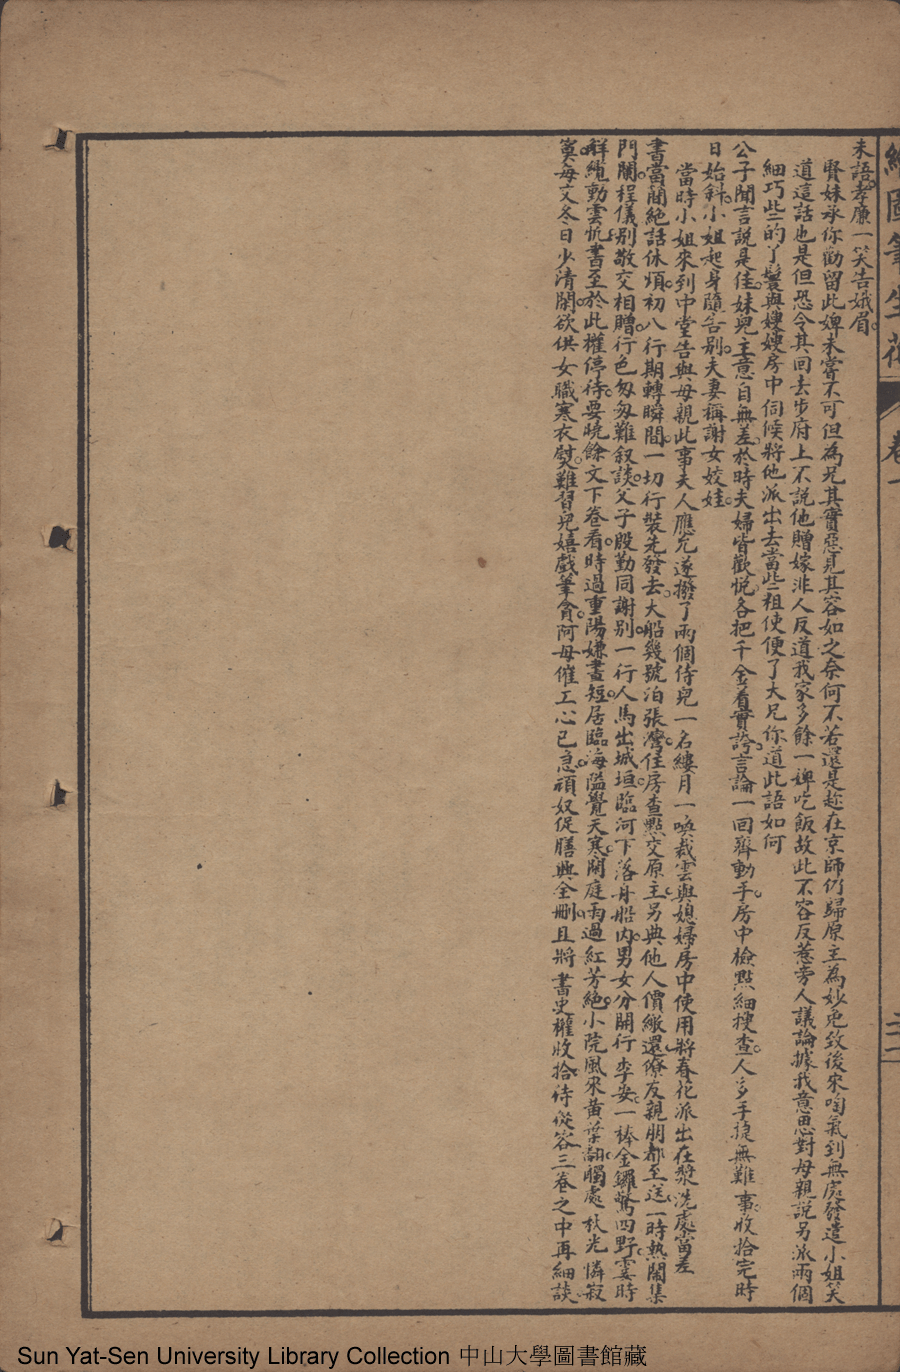 繪圖筆生花 卷 二十二
未語孝廉一笑告娥眉
賢妹承你勸留此婢未嘗不可但為兄其實惡見其容如之奈何不若還是趁在京師仍歸原主為妙免致後來啕氣到無處發遣小姐笑
道這話也是但恐令其回去步府上不說他贈嫁非人反道我家多餘一婢吃飯故此不容反惹旁人議論據我意思對母親說另派兩個
細巧些的丫鬟與嫂嫂房中伺候將他派出去當些粗使便了大兄你道此語如何
公子聞言說是佳妹兒主意自無差於時夫婦皆歡悅各把千金着實誇言論一回齊動手房中檢點細搜查人多手捷無難事收拾完時
日始斜小姐起身隨告別夫妻稱謝女姣娃
當時小姐來到中堂告與母親此事夫人應允遂撥了兩個侍兒一名縷月一喚裁雲與媳婦房中使用將春花派出在漿洗處當差
書當簡絕話休煩初八行期轉瞬間一切行裝先發去大船幾號泊張灣住房查點交原主另典他人價繳還僚友親朋都至送一時熱鬧集
門闌程儀別敬交相贈行色匆匆難叙談父子殷勤同謝別一行人馬出城垣臨河下落身船內男女分開行李安一棒金鑼驚四野霎時
解纜動雲帆書至於此權停待要曉餘文下卷看時過重陽嫌晝短居臨海隘覺天寒閑庭雨過紅芳絕小院風來黃葉翻觸處秋光憐寂
寞每文冬日少清閑欲供女職寒衣熨難習兒嬉戲筆貪阿母催工心已急頑奴促膳興全刪且將書史權收拾待從容三卷之中再細談
Sun Yat-Sen University Library Collection 中山大學圖書館藏